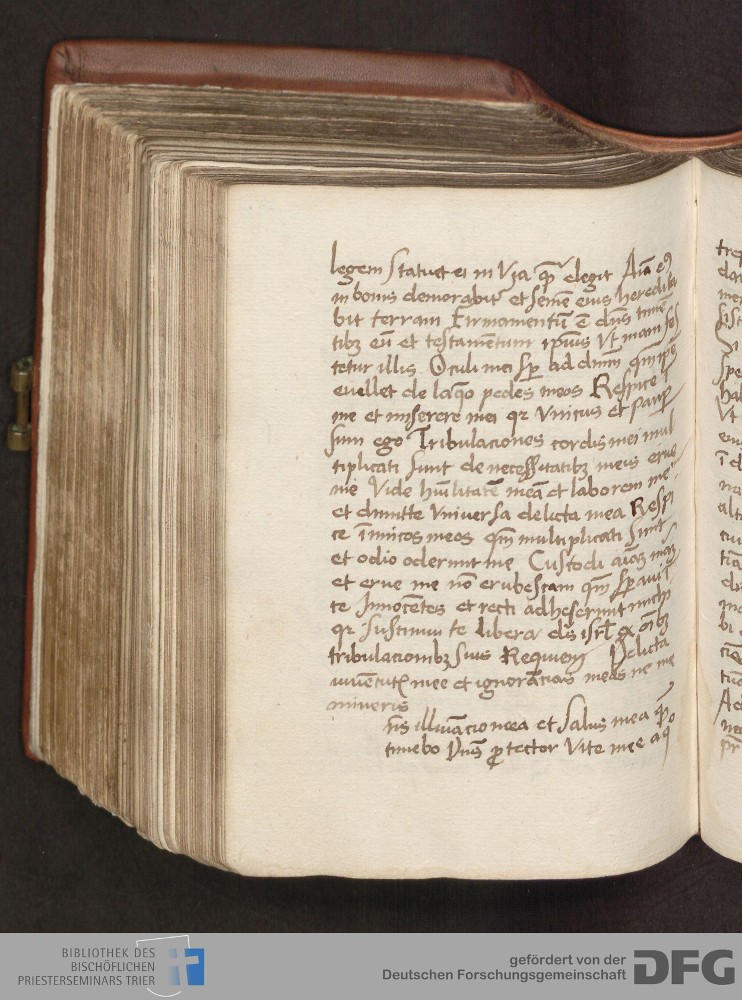 legem Statuet ei in Via q̄ elegit Aīa eꝰ
in bonis demorabit᷑ et semē eius heredita
bit terram Firmamentū ē dn̄s timē
tibꝫ eū et testamentum ipsius Vt mani fes
tetur illis Oculi mei sꝑ ad dnm̄ qm̄ ipse
euellet de laq̄o pedes meos Respice ī
me et miserere mei qꝛ Vnicus et paupꝑ
sum ego Tribulaciones cordis mei mul
tiplicati sunt de necessitatibꝫ meis erue
me Vide hūilitatē meā et laborem meū
et dimitte Vniuersa delicta mea Respi
ce īimicos meos qm̄ multiplicati sunt
et odio oderunt me Custodi aīaꝫ meaꝫ
et erue me nō erubescam qm̄ sꝑaui ī
te Jnnocētes et recti adheserunt michi
qꝛ sustinui te libera ds̄ isrl̄ ex oībꝫ
tribulacionibꝫ suis Requiem Delicta
iuuentutꝭ mee et ignorācias meas ne me
mineris
n̄s illuīacio mea et salus mea q̄
timebo Dn̄s ꝓtector Vite mee a q̊
BIBLIOTHEK DES
BISCHÖFLICHEN
PRIESTERSEMINARS TRIER
gefördert von der
Deutschen Forschungsgemeinschaft
DFG